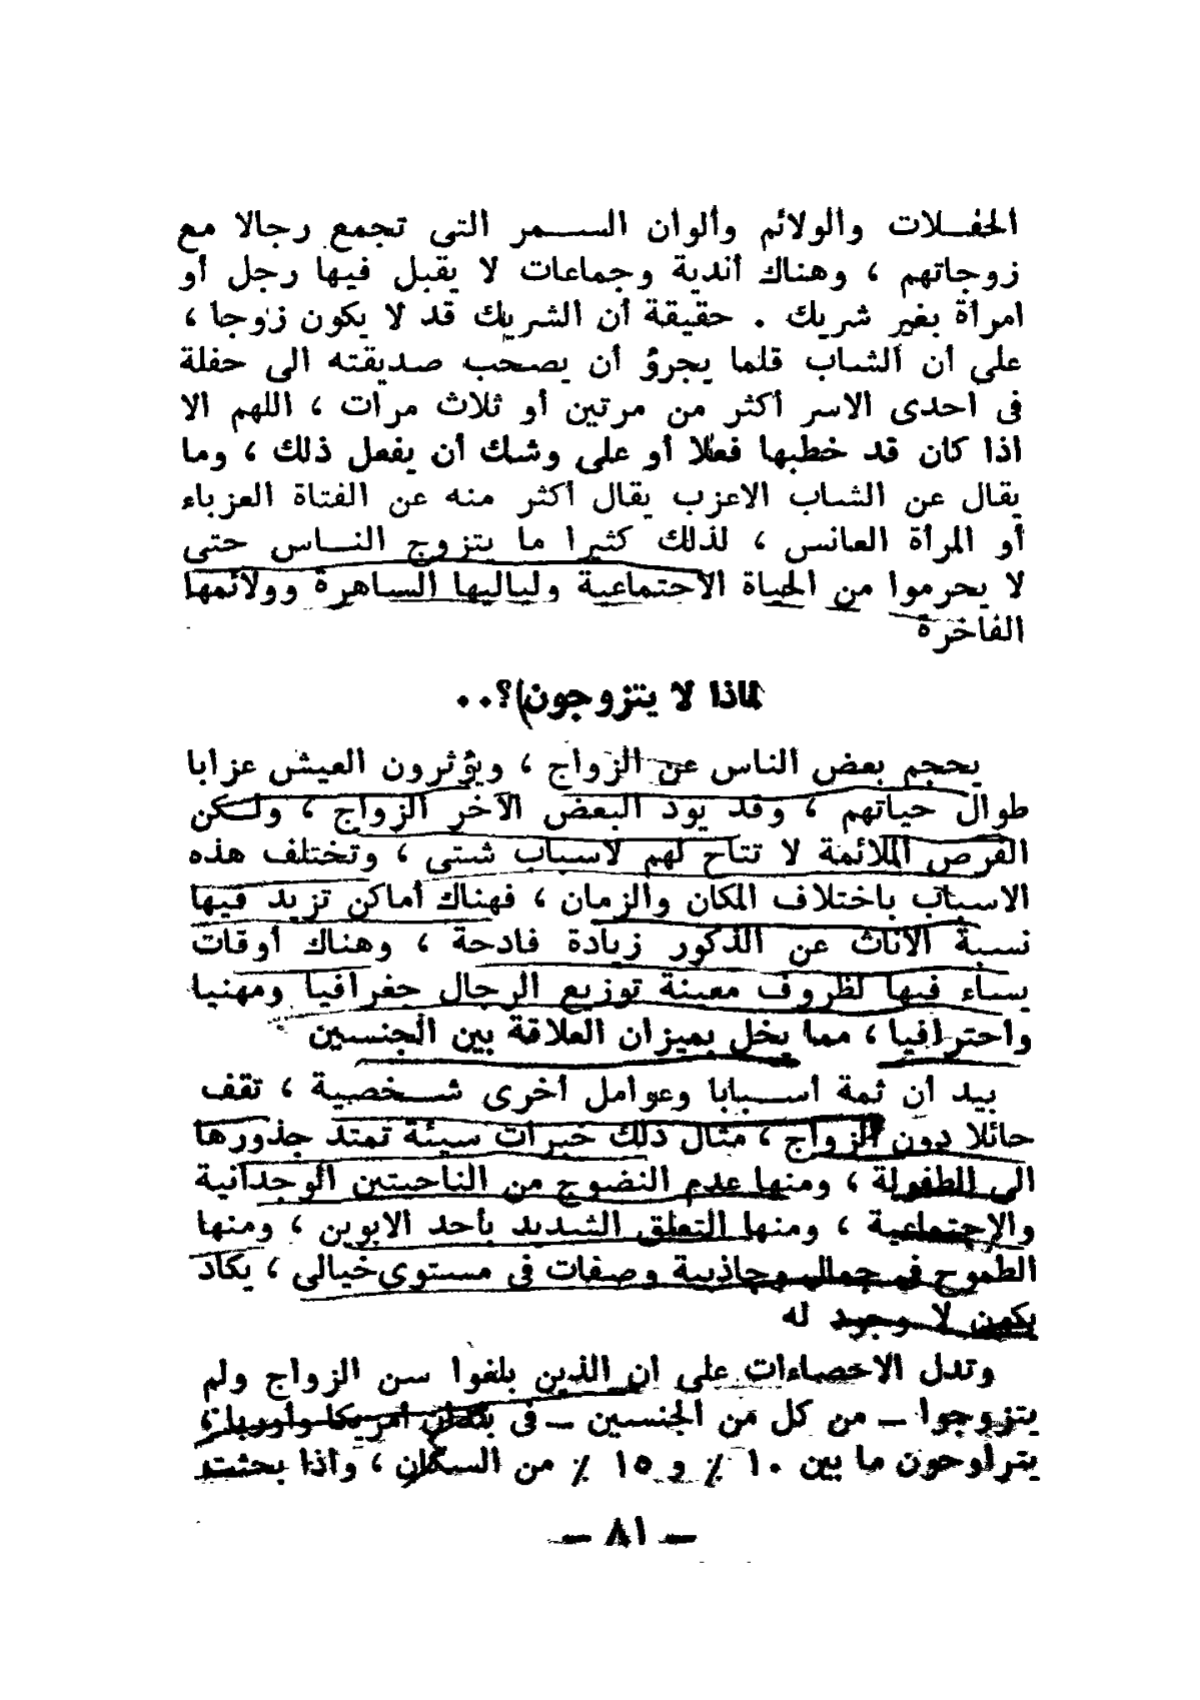 الحفـــلات والولائم وألوان الســـمر التى تجمع رجالا مع
زوجاتهم ، وهناك أندية وجماعات لا يقبل فيها رجل أو
امرأة بغير شريك . حقيقة أن الشريك قد لا يكون زوجا ،
على أن الشاب قلما يجرؤ أن يصحب صديقته الى حفلة
فى احدى الاسر أكثر من مرتين أو ثلاث مرات ، اللهم الا
اذا كان قد خطبها فعلا أو على وشك أن يفعل ذلك ، وما
يقال عن الشاب الاعزب يقال أكثر منه عن الفتاة العزباء
أو المرأة العانس ، لذلك كثيرا ما يتزوج النـــاس حتى
لا يحرموا من الحياة الاجتماعية ولياليها الساهرة وولائمها
الفاخرة
لماذا لا يتزوجون؟..
يحجم بعض الناس عن الزواج ، ويؤثرون العيش عزابا
طوال حياتهم ، وقد يود البعض الآخر الزواج ، ولـكن
الفرص الملائمة لا تتاح لهم لاسباب شتى ، وتختلف هذه
الاسباب باختلاف المكان والزمان ، فهناك أماكن تزيد فيها
نسبة الاناث عن الذكور زيادة فادحة ، وهناك أوقات
يساء فيها لظروف معينة توزيع الرجال جغرافيا ومهنيا
واحترافيا ، مما يخل بميزان العلاقة بين الجنسين
بيد أن ثمة أســـبابا وعوامل أخرى شـــخصية ، تقف
حائلا دون الزواج ، مثال ذلك خبرات سيئة تمتد جذورها
الى الطفولة ، ومنها عدم النضوج من الناحيتين الوجدانية
والاجتماعية ، ومنها التعلق الشديد بأحد الابوين ، ومنها
الطموح فى جمال وجاذبية وصفات فى مستوى خيالى ، يكاد
يكون لا وجود له
وتدل الاحصاءات على ان الذين بلغوا سن الزواج ولم
يتزوجوا – من كل من الجنسين – فى أمريكا وأوربا ،
يتراوحون ما بين ١٠ ٪ و ١٥ ٪ من السكان ، واذا بحثت
– ٨١ –